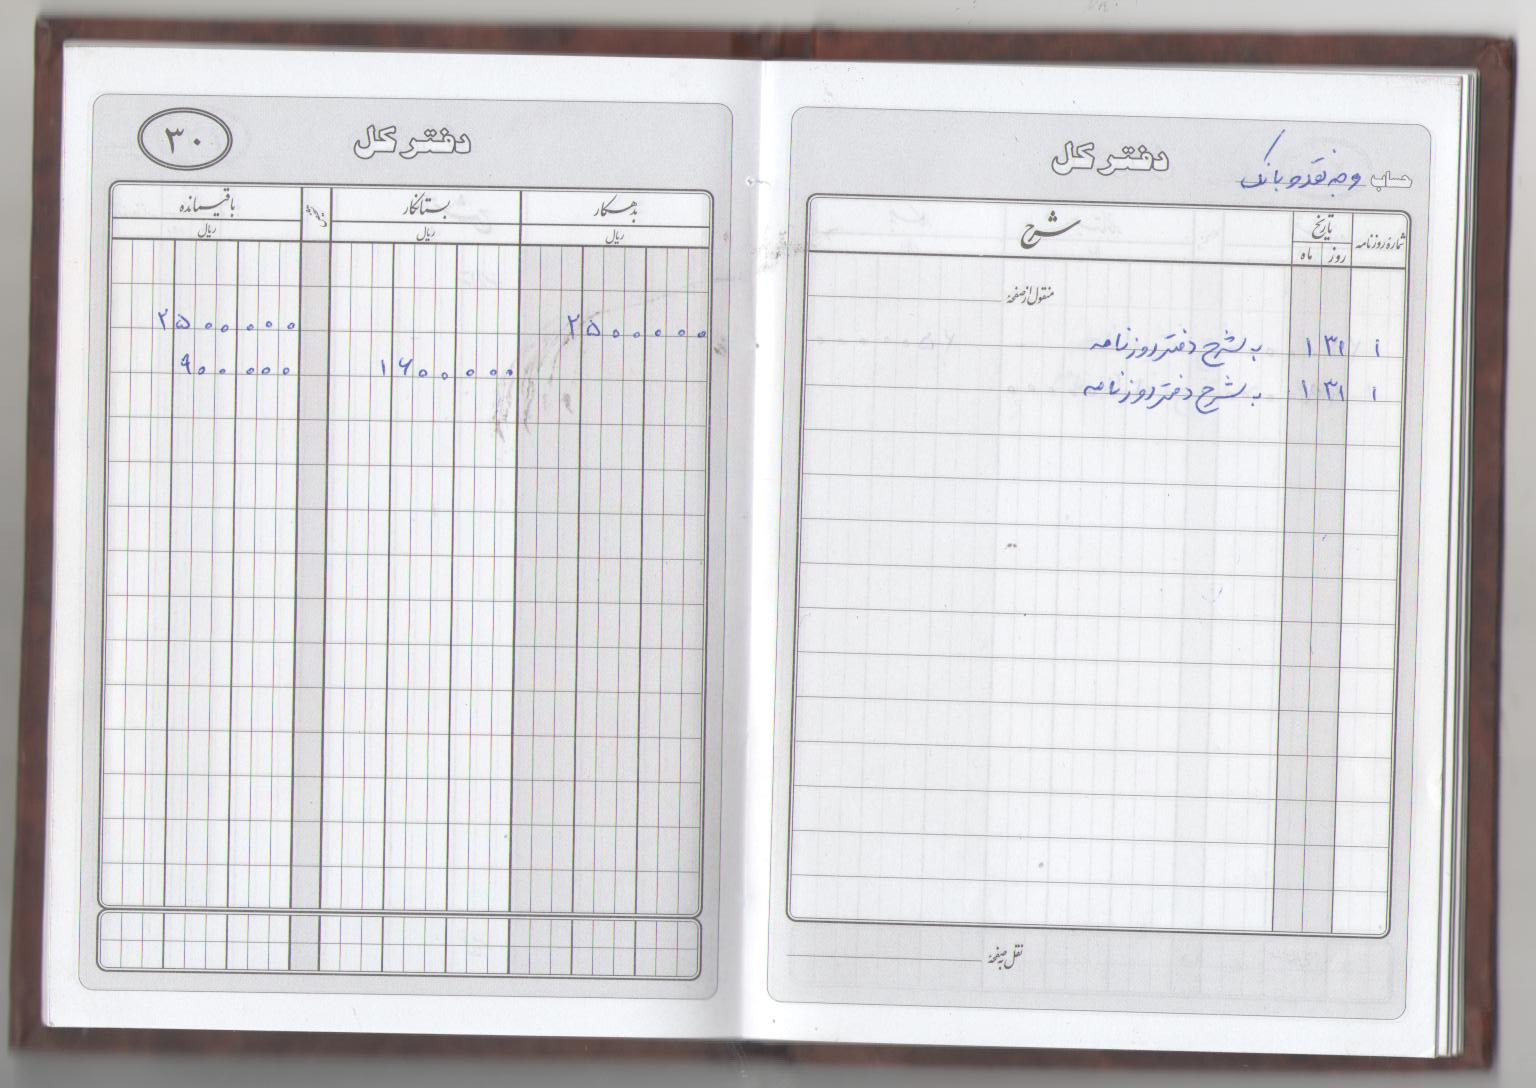 دفتر کل
حساب وجه نقد و بانک
شمارهٔ روزنامه تاریخ شرح
روز ماه
منقول از صفحهٔ
۱ ۳۱ ۱ به شرح دفتر روزنامه
۱ ۳۱ ۱ به شرح دفتر روزنامه
نقل به صفحهٔ
دفتر کل
۳۰
بدهکار بستانکار تشخیص باقیمانده
ریال ریال ریال
۲۵۰۰۰۰۰ ۲۵۰۰۰۰۰
۱۶۰۰۰۰۰ ۹۰۰۰۰۰